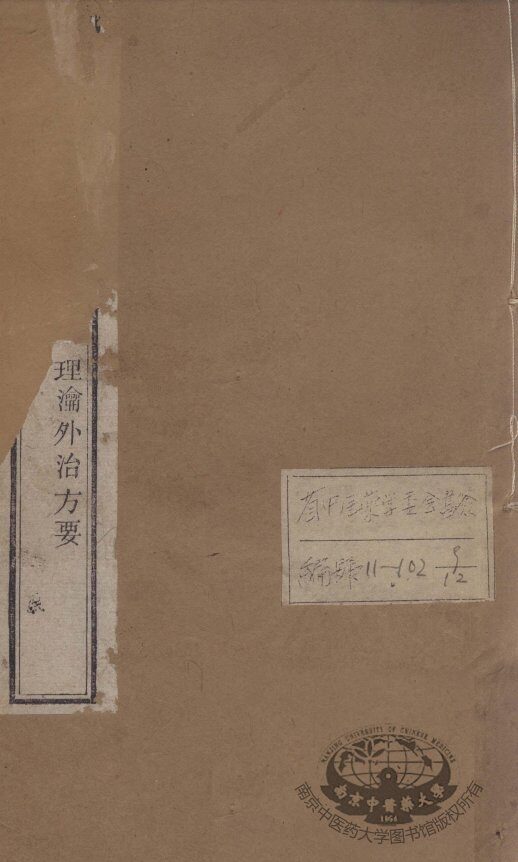 理瀹外治方要
编号 11-102 9/12
NANJING UNIVERSITY OF CHINESE MEDICINE
南京中醫藥大學
1954
南京中医药大学图书馆版权所有